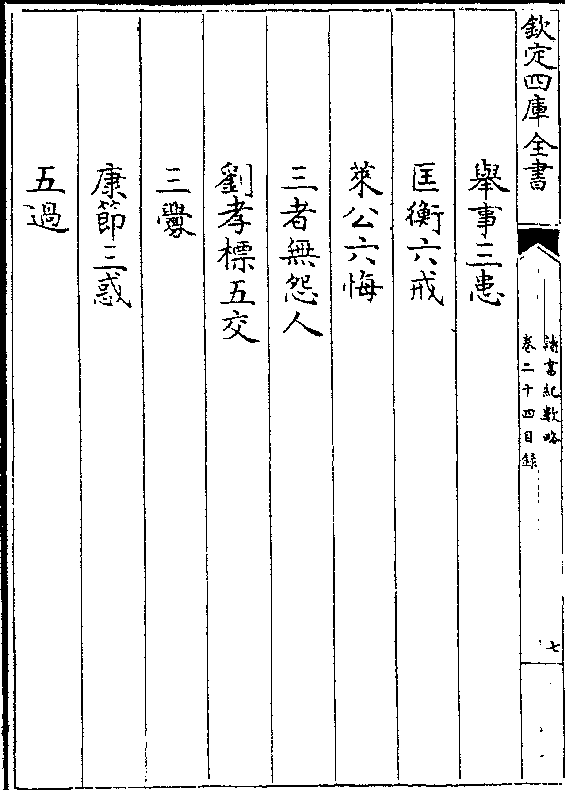 欽定四庫全書
讀書紀數略
卷二十四目錄
七
舉事三患
匡衡六戒
萊公六悔
三者無怨人
劉孝標五交
三釁
康節三惑
五過